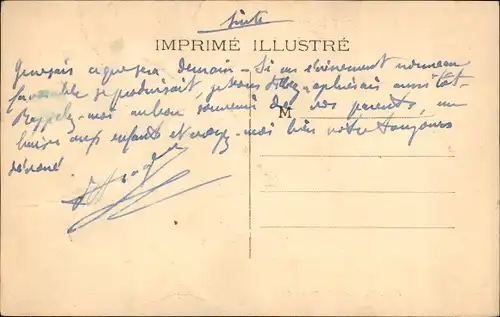 Suite
IMPRIMÉ ILLUSTRÉ
Je ne sais ce que sera demain - Si un événement nouveau
favorable se produisait, je vous télégraphierais aussitôt.
Rappelez-moi au bon souvenir de vos parents, un
M
baiser aux enfants et croyez-moi bien votre toujours
dévoué